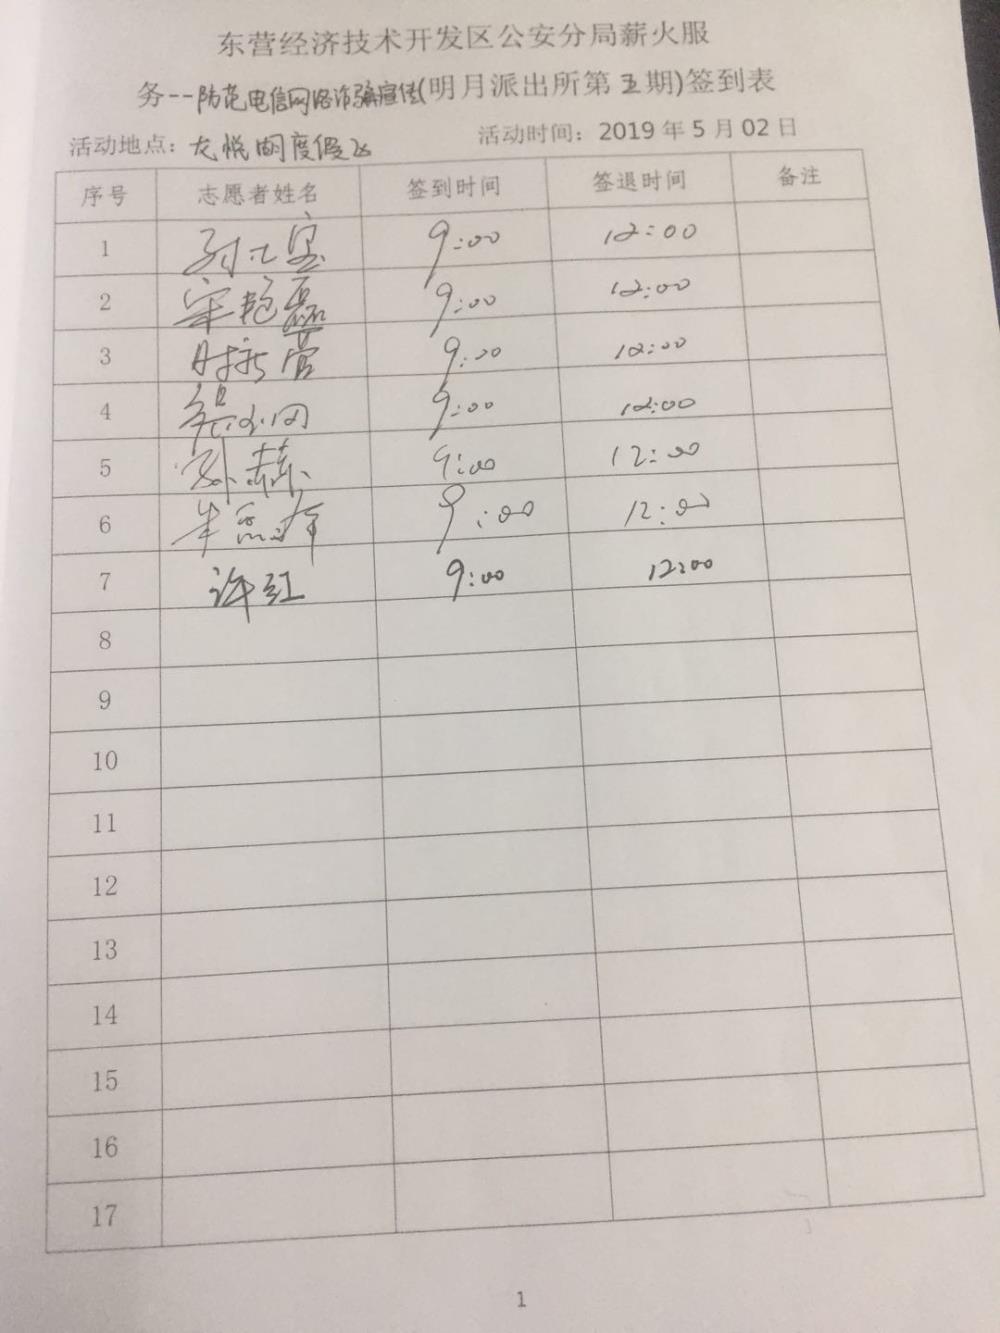 东营经济技术开发区公安分局薪火服
务--防范电信网络诈骗宣传(明月派出所第五期)签到表
活动地点：龙悦湖度假区 活动时间：2019年5月02日
序号 志愿者姓名 签到时间 签退时间 备注
1 9:00 12:00
2 宋艳磊 9:00 12:00
3 9:00 12:00
4 9:00 12:00
5 孙赫 9:00 12:00
6 9:00 12:00
7 许红 9:00 12:00
8
9
10
11
12
13
14
15
16
17
1